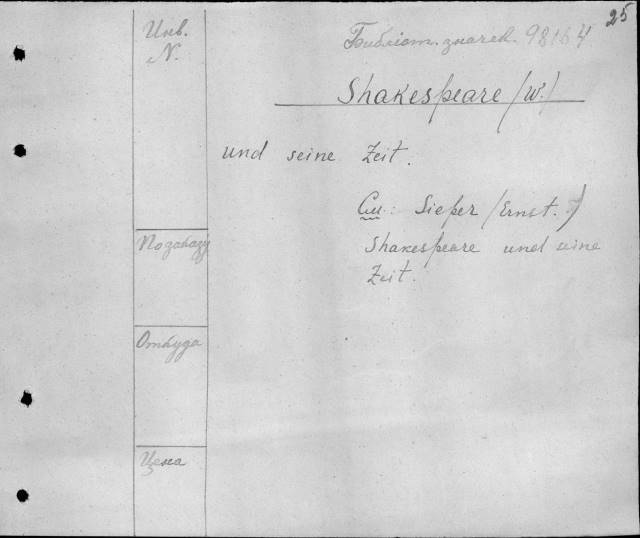 25
Инв.
N.
Библіот. значек. 98164
Shakespeare (W.)
und seine Zeit.
См: Sieper (Ernst.)
Shakespeare und seine
Zeit.
По заказу
Откуда
Цена